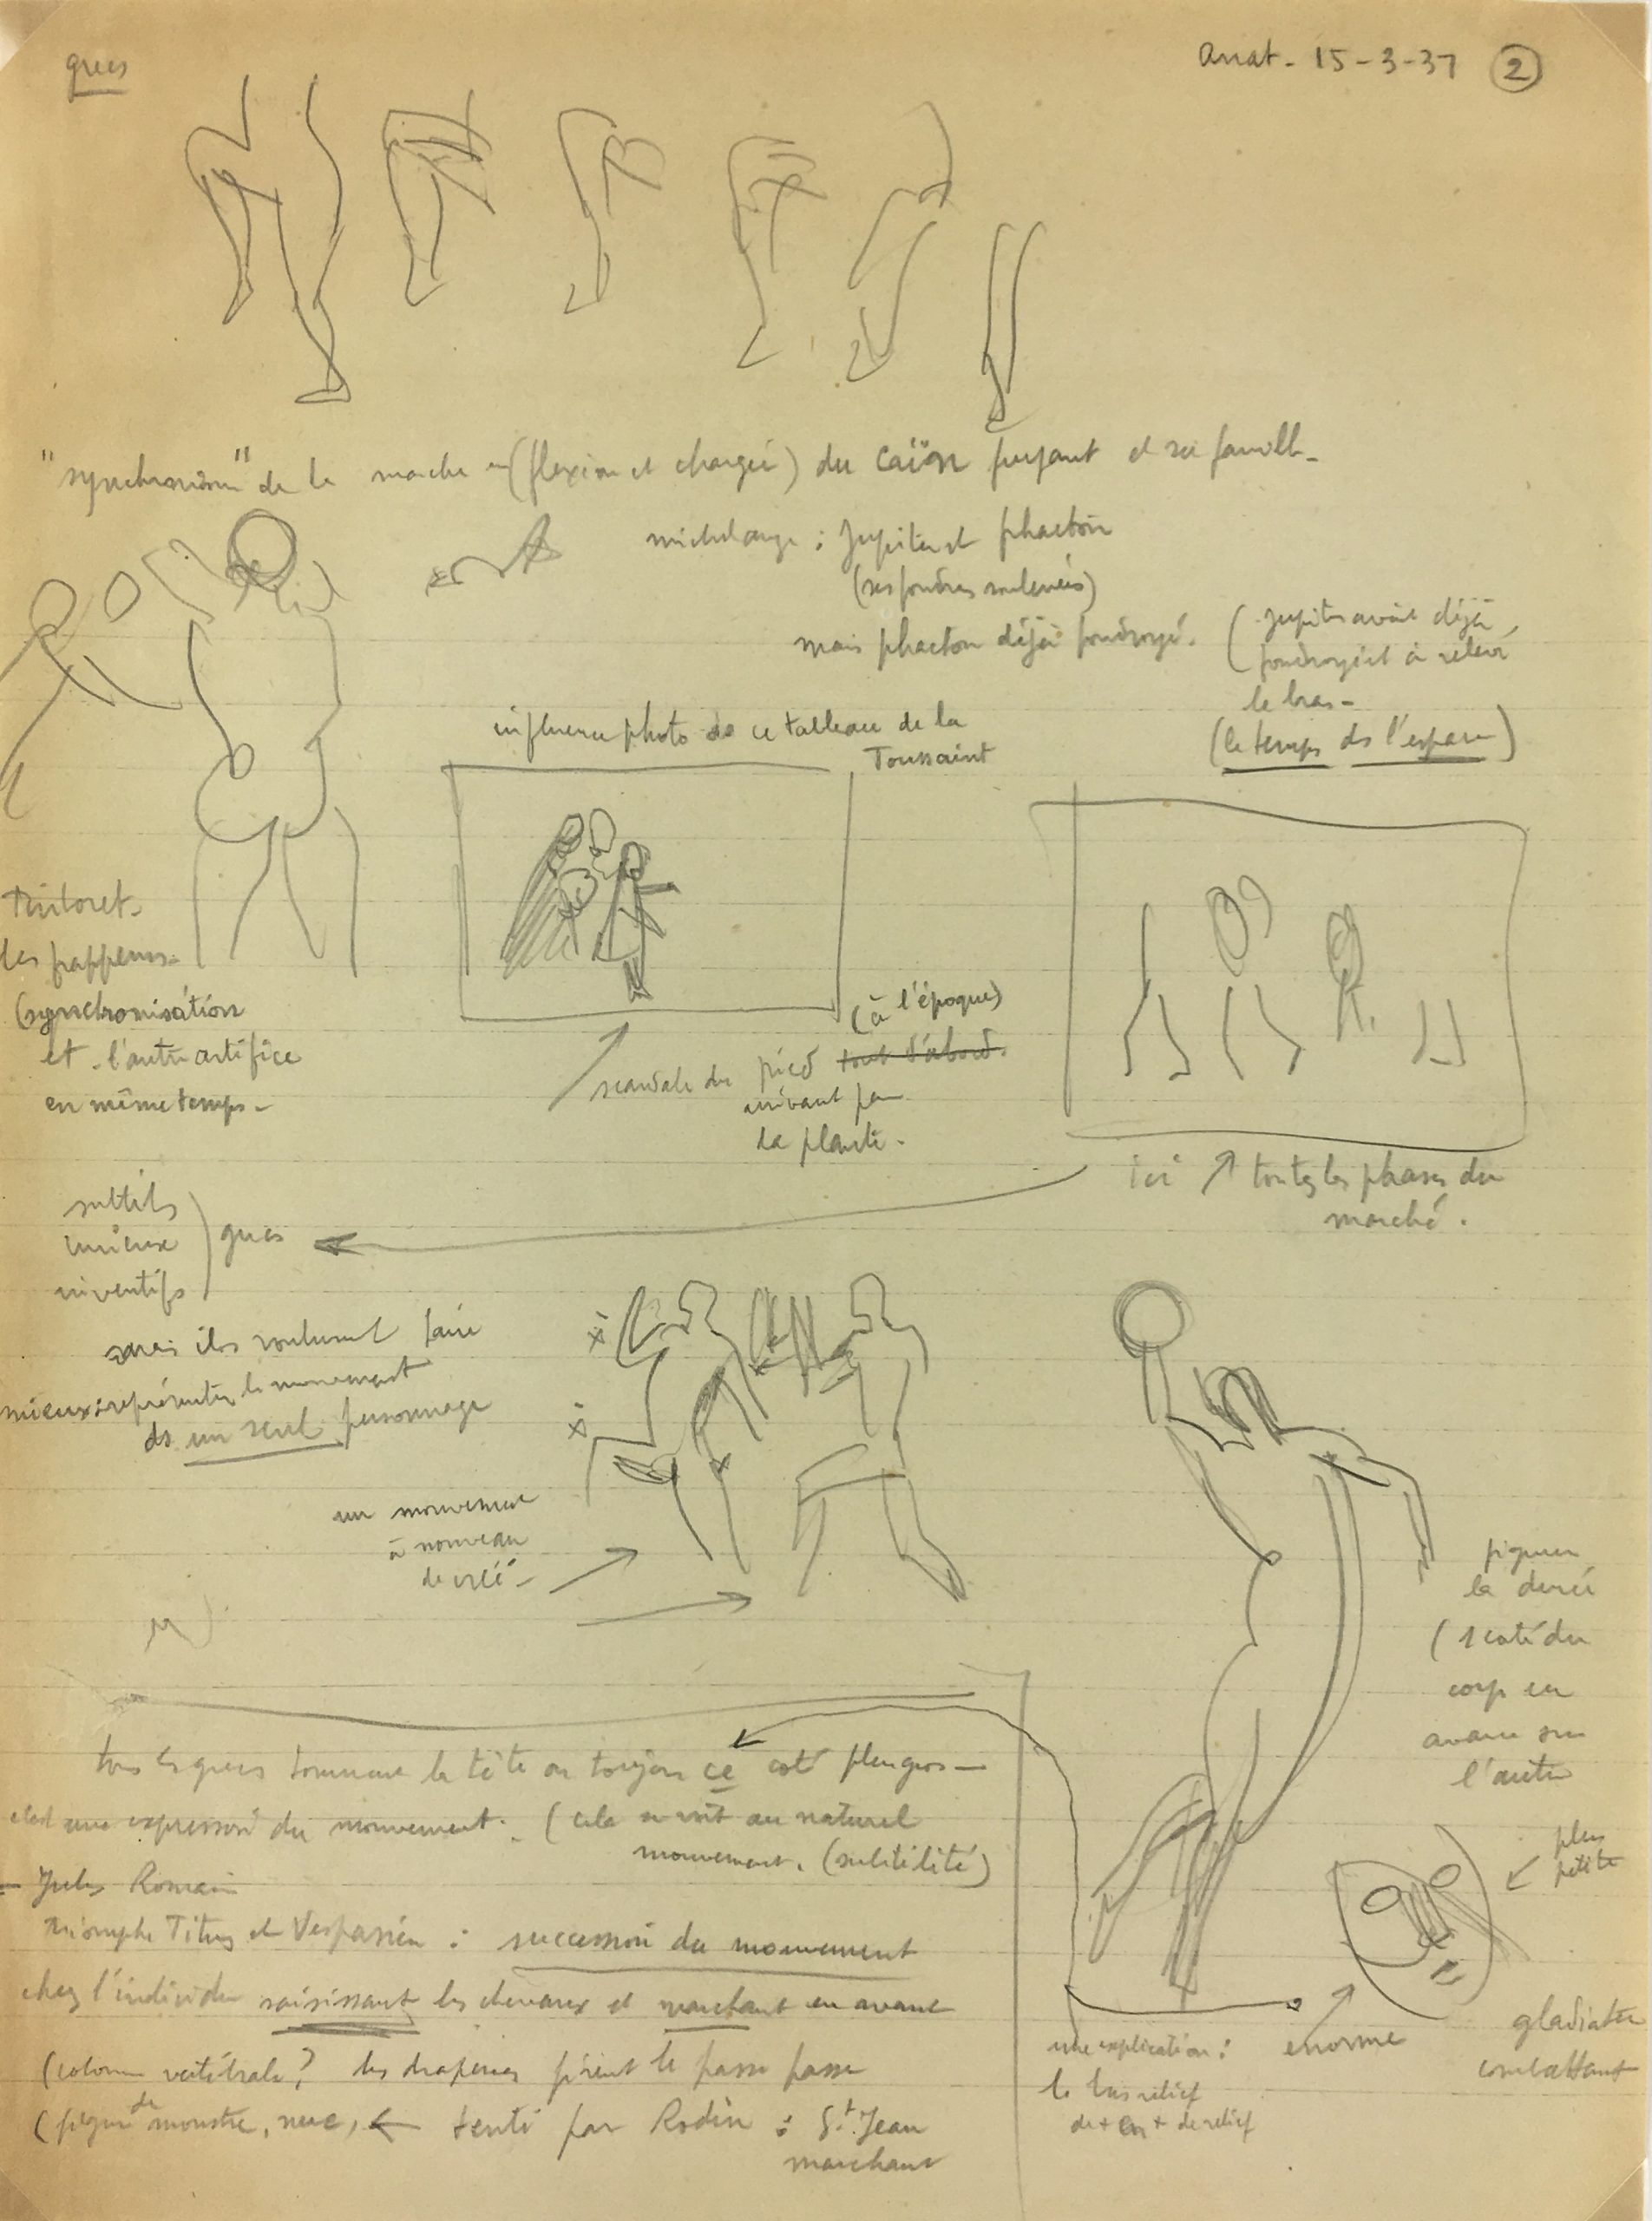 grecs
anat- 15-3-37 2
"synchronisme" de la marche (flexion et chargée) du Caïn fuyant et sa famille-
michelange : Jupiter et phaeton
(ses foudres soulevées)
mais phaeton déjà foudroyé.
(Jupiter avait déjà
foudroyé et à relevé
le bras-
(le temps ds l'espace)
influence photo ds ce tableau de la
Toussaint
Tintoret-
les frappeurs-
(synchronisation
et l'autre artifice
en même temps-
(à l'époque)
scandale du pied tout d'abord.
arrivant par
la plante.
ici toutes les phases du
marché.
subtils
curieux
inventifs
grecs
mais ils voulurent faire
mieux: représenter le mouvement
ds un seul personnage
un mouvement
à nouveau
decalé-
figurer
la durée
(1 coté du
corp en
avance sur
l'autre
tous les grecs tournant la tête on toujours ce coté plus gros-
c'est une expression du mouvement. (cela se voit au naturel
mouvement. (subtilité)
- Jules Romain
triomphe Titus et Vespasien : succession du mouvement
chez l'individu saisissant les chevaux et marchant en avant
(colonne vertébrale? les draperies font le passe passe
(figure de monstre, nue, tenté par Rodin : St. Jean
marchant
plus
petite
enorme
gladiateur
combattant
une explication :
le bas relief
de + en + de relief